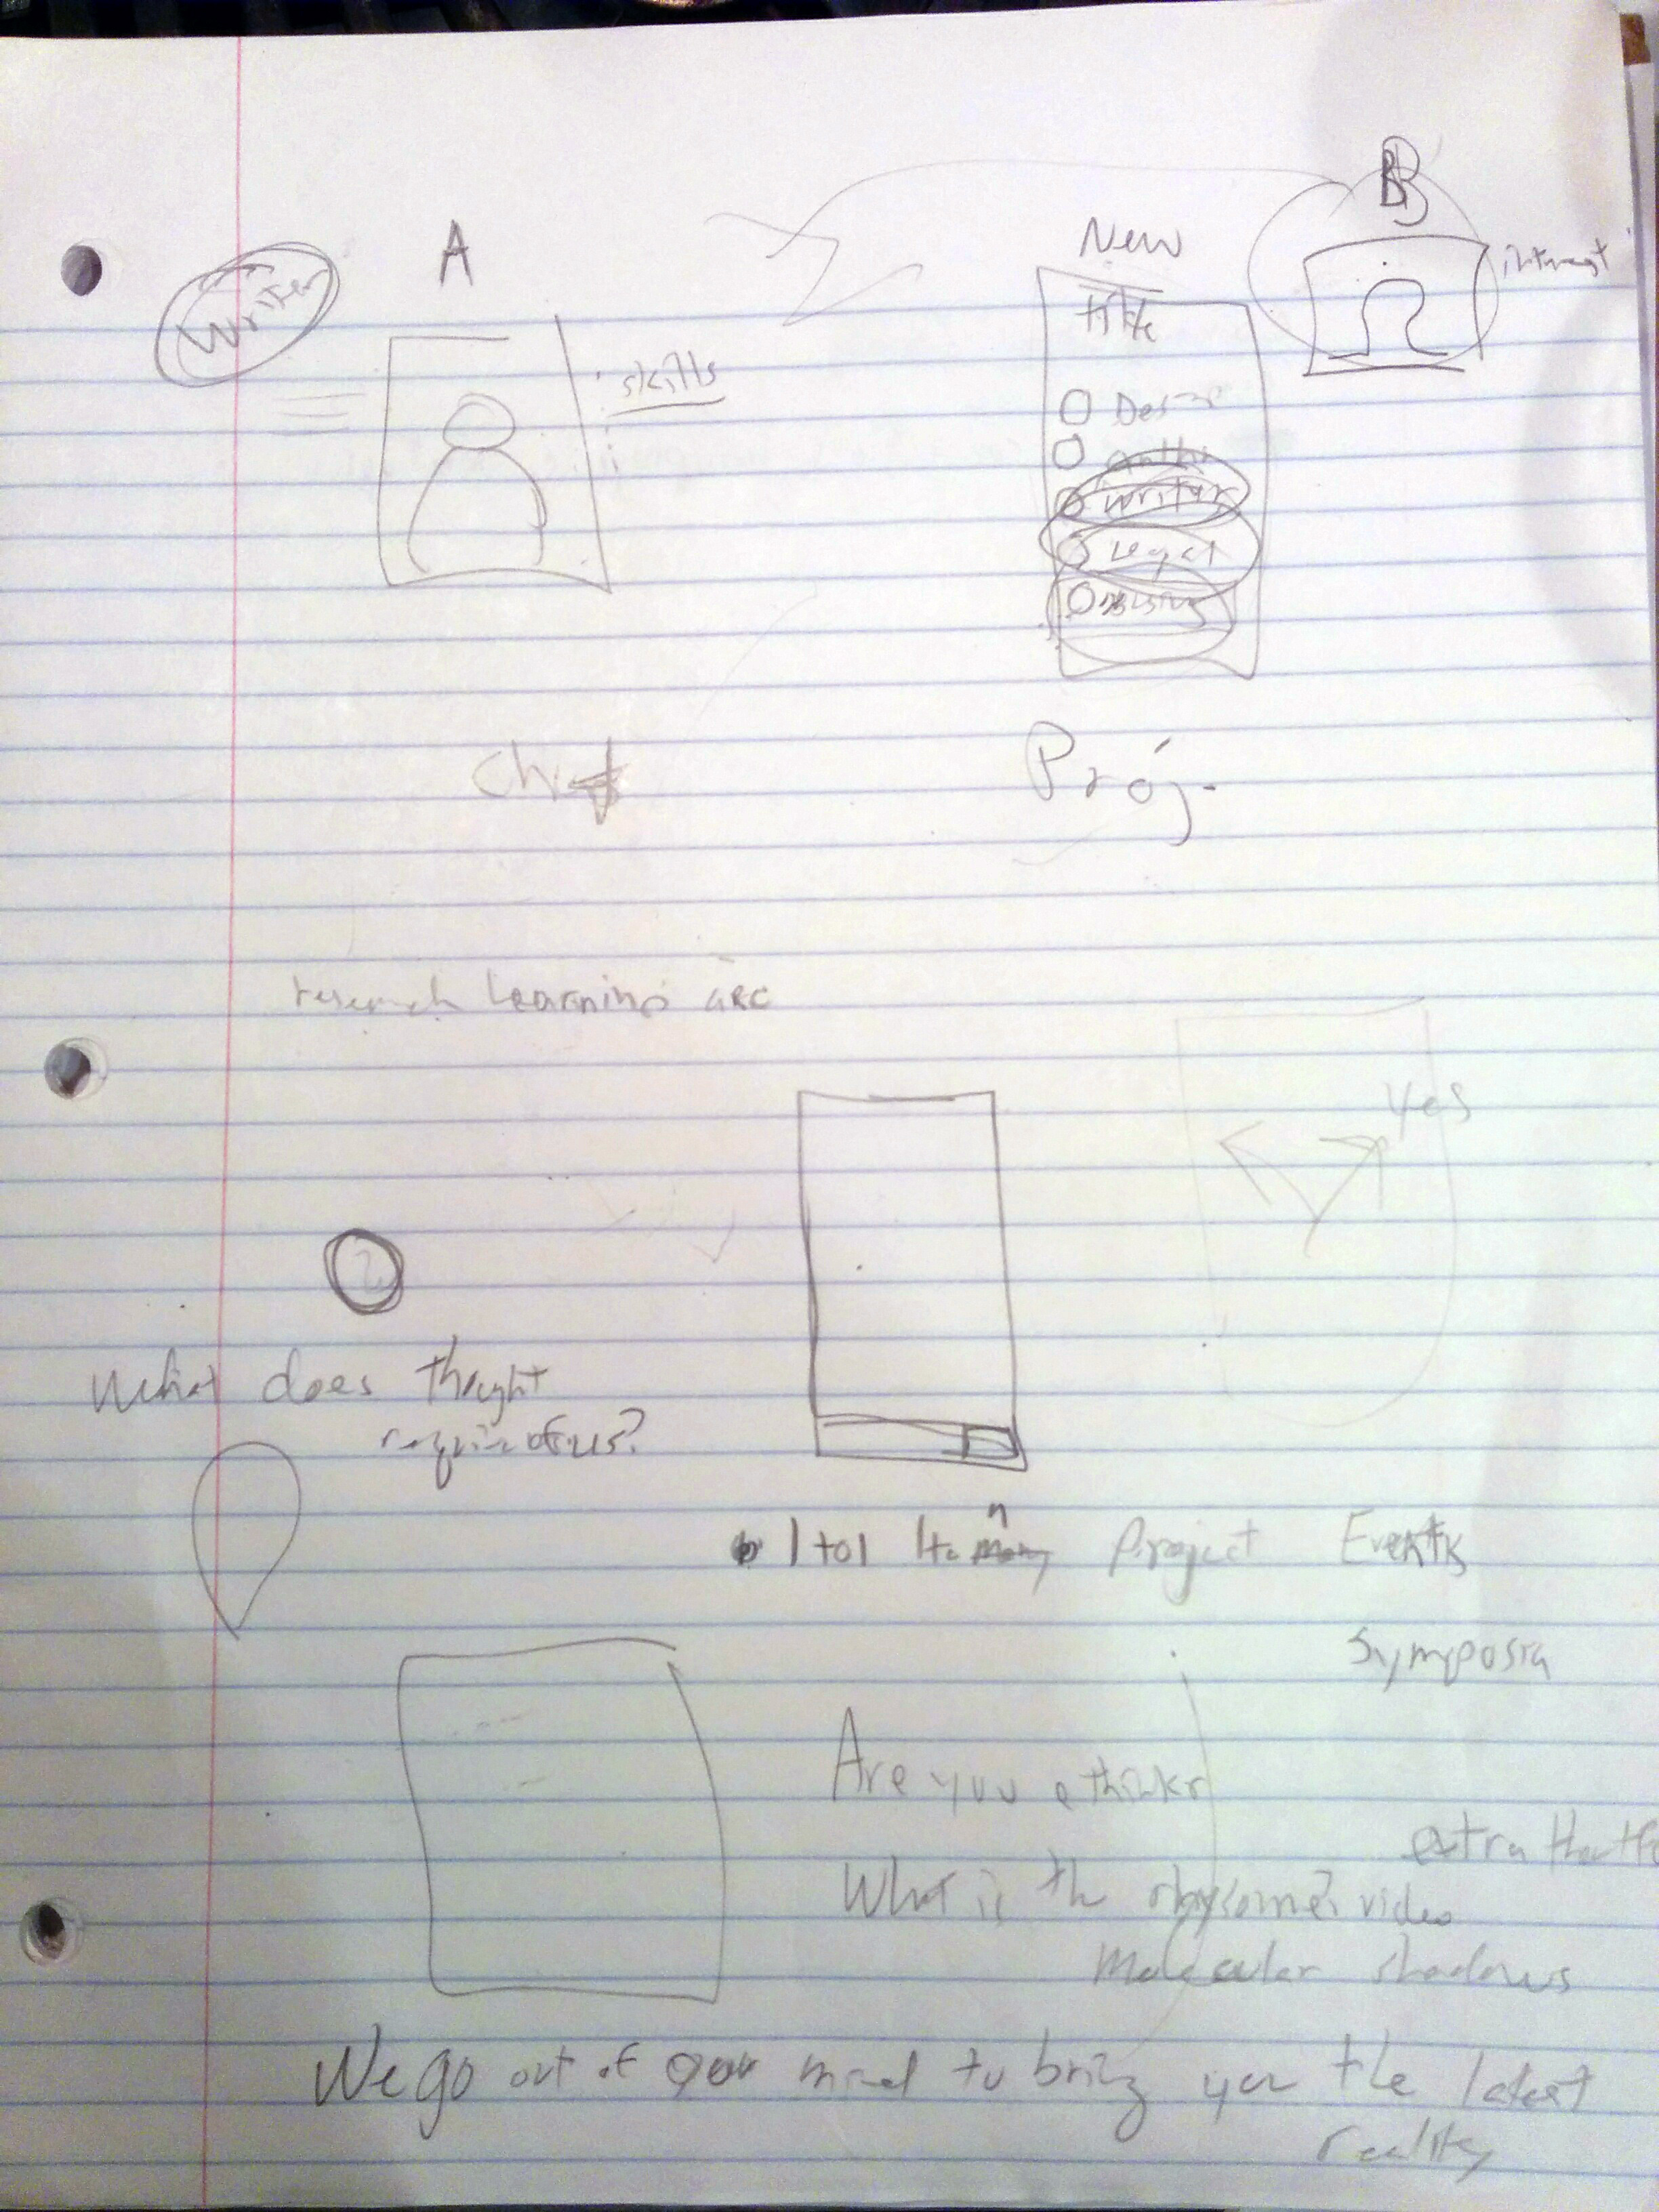 B
A
New
Writer
interest
title
skills
writer
Legal
Proj.
research learning arc
Yes
?
What does thought
require of us?
1 to 1 1 to n Project Events
Symposia
Are you a thinkr
extra
What is the video
Molecular shadows
We go out of our mind to bring you the latest
reality